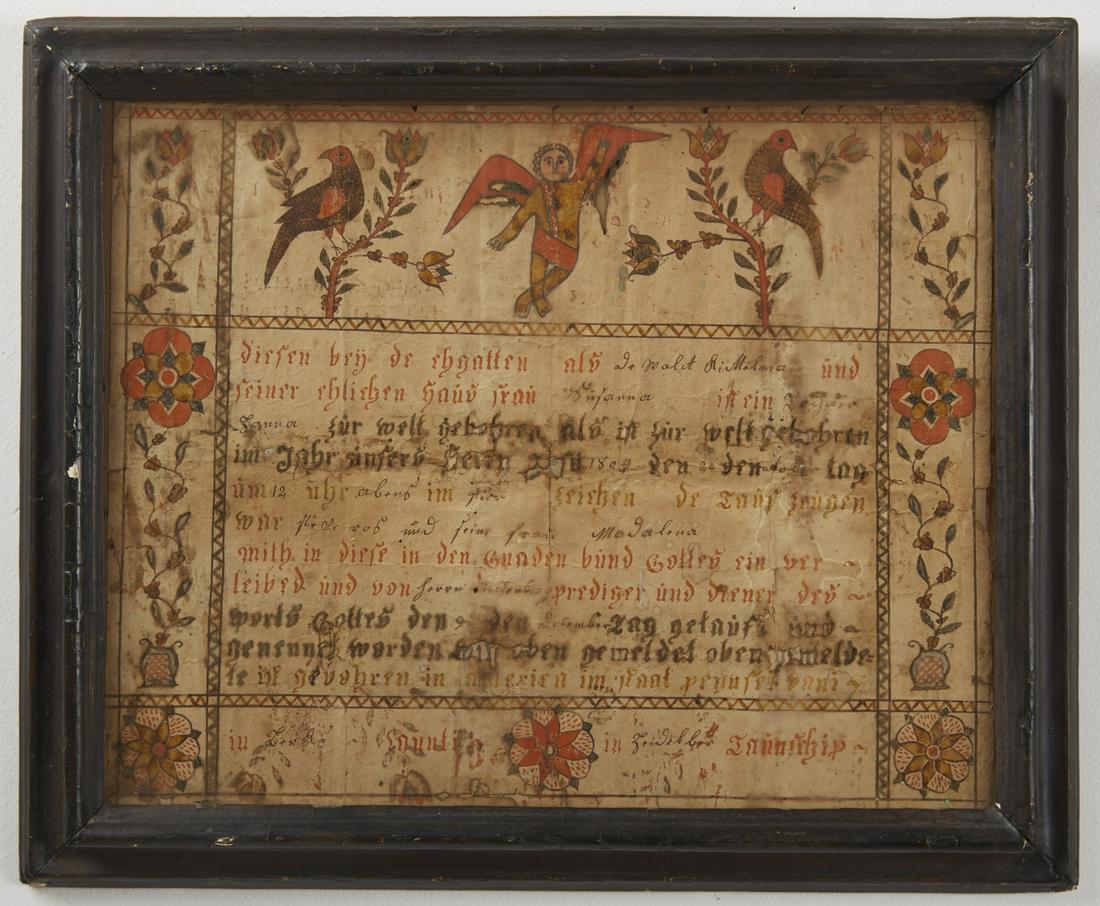 diesen bey de ehgatten als de walt und
seiner ehlichen Haus frau Susanna ist ein
Hanna zur welt gebohren als ist zur welt gebohren
im Jahr unsers Heren den den tag
um 12 uhr abens im zeichen de Tauf zeugen
war ros und seine frau Madalena
mith in diese in den Gnaden bund Gottes ein ver
leibed und von herrn prediger und diener des
worts Gottes den 9 den December Tag getauft und
genennet worden wie oben gemeldet oben gemelde-
te ist gebohren in america im staat pennsel vani
in Berks Caunti in Heidelber Taunschip